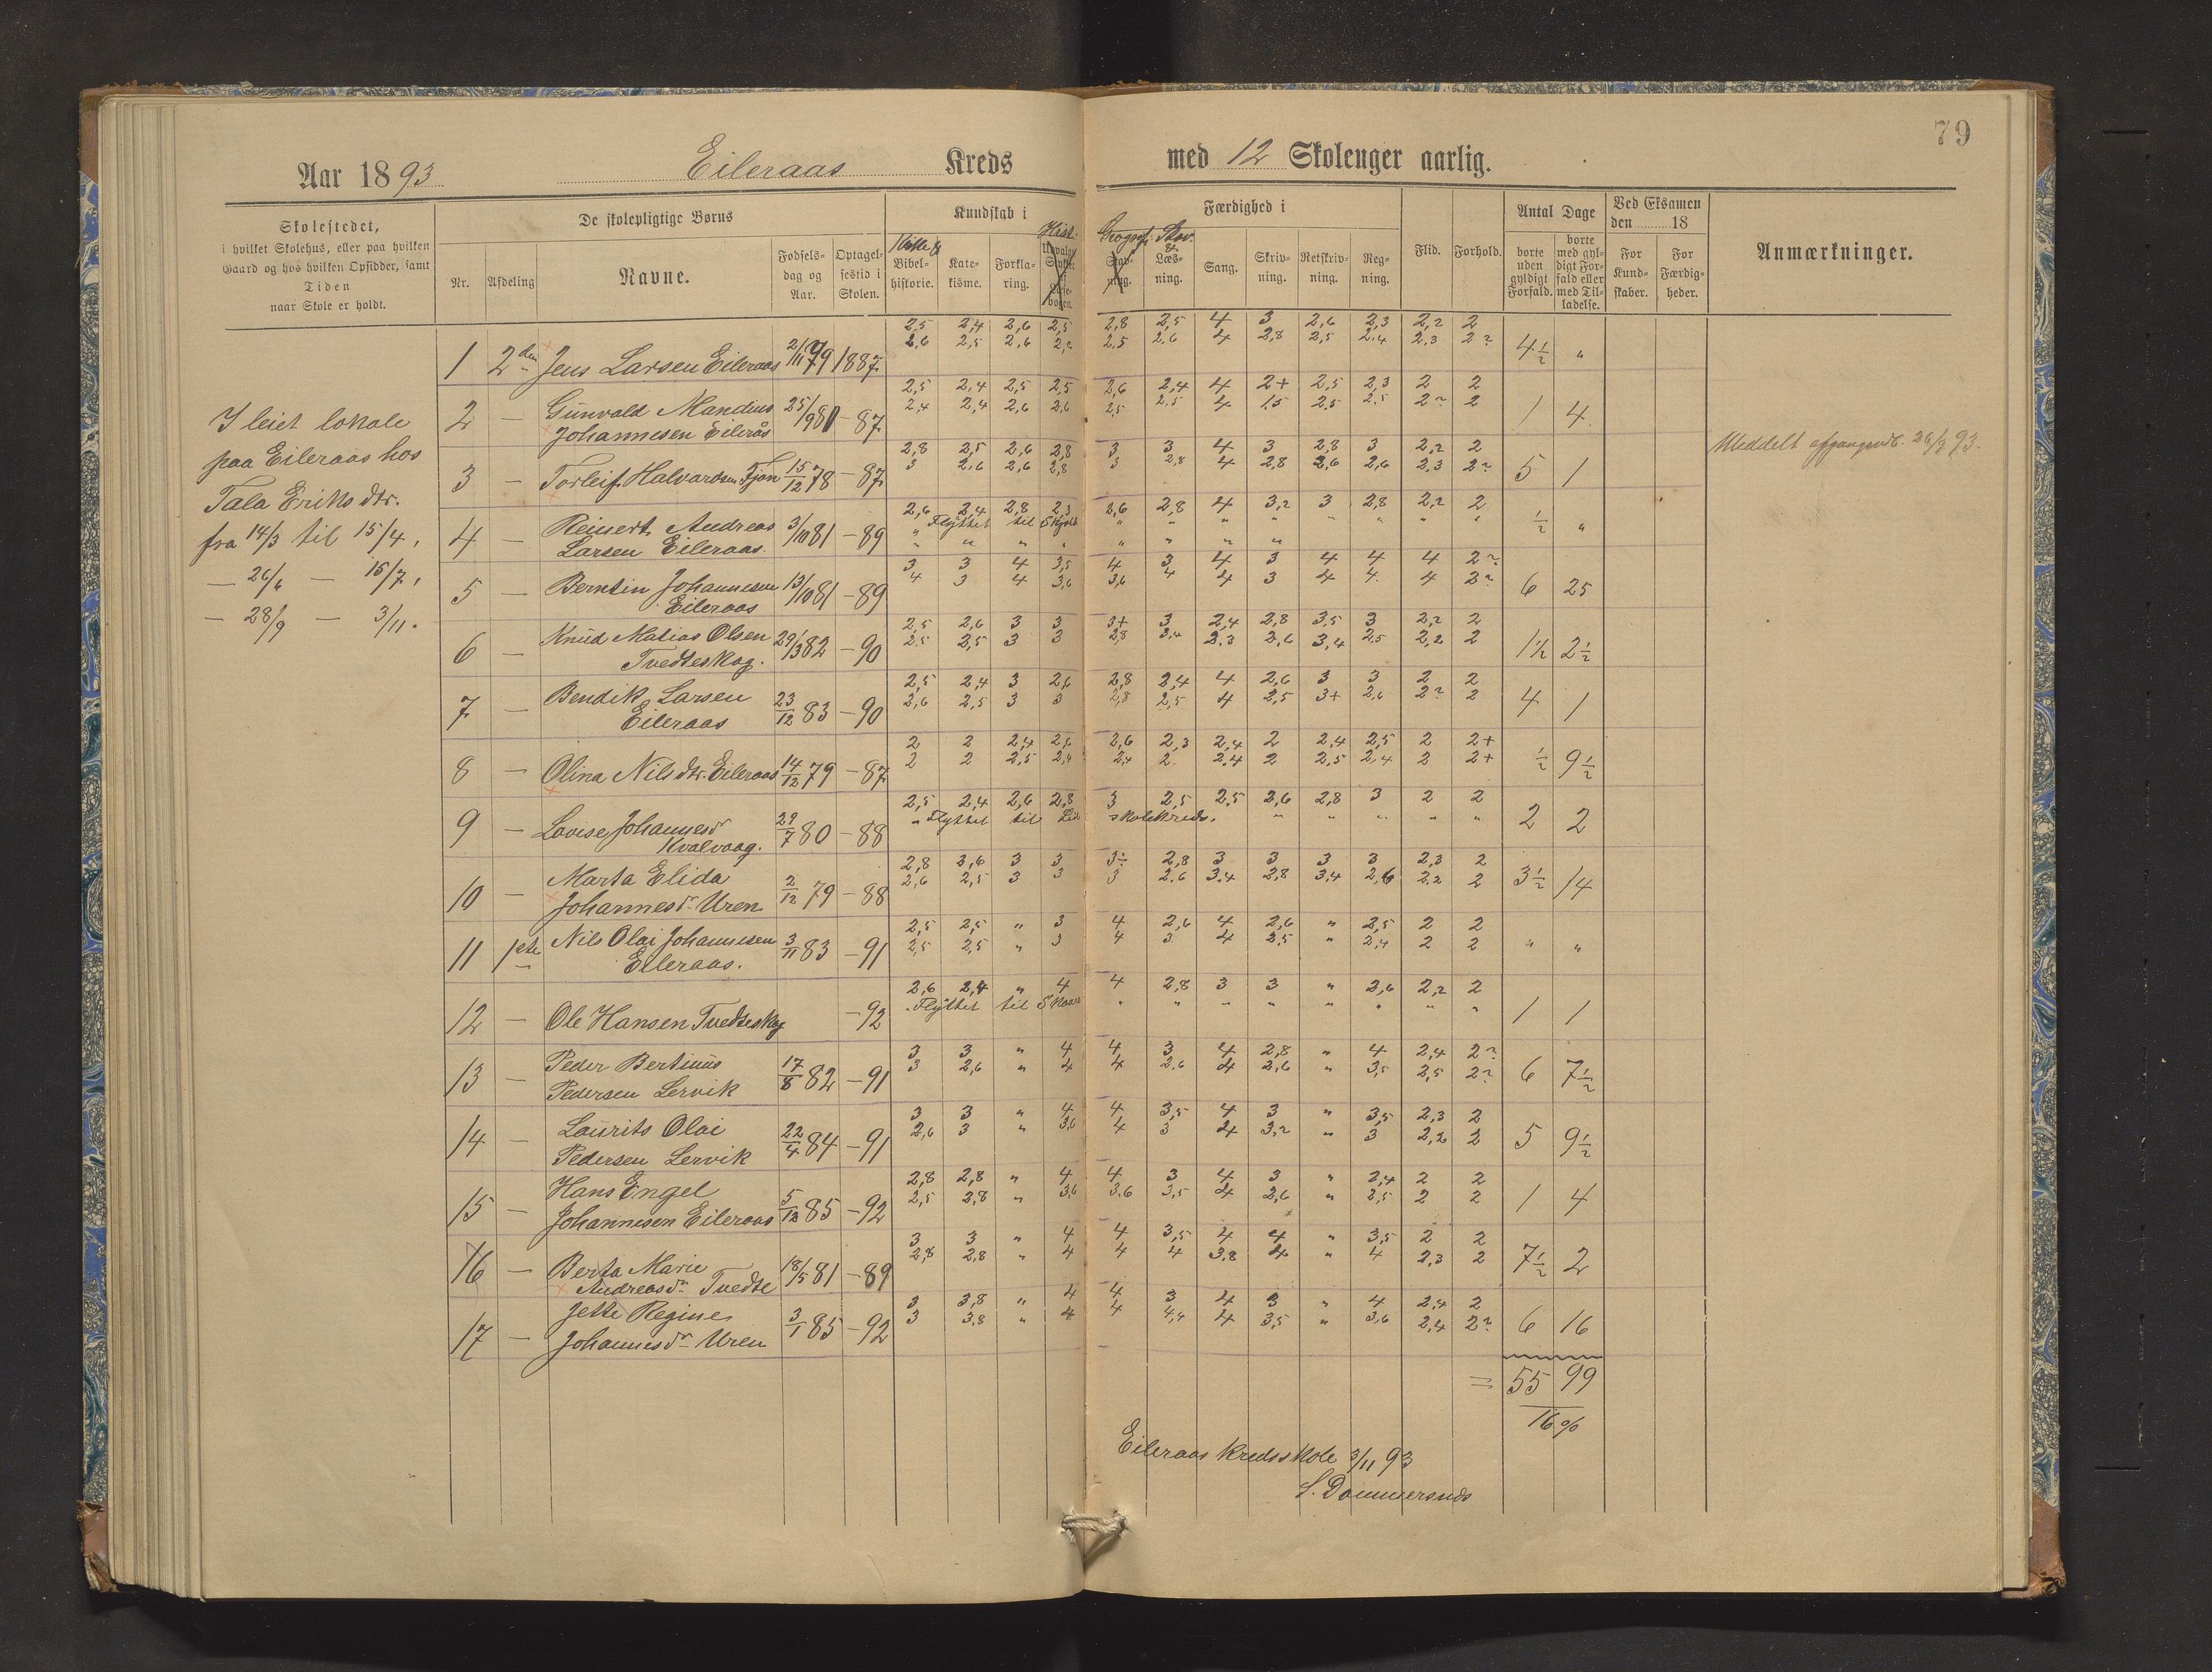 79
Aar 1893 Eileraas Kreds med 12 Skoleuger aarlig.
Skolestedet,
i hvilket Skolehus, eller paa hvilken
Gaard og hos hvilken Opsidder, samt
Tiden
naar Skole er holdt.
De skolepligtige Børns
Nr. Afdeling Navne. Fødsels-dag og Aar. Optagel-sestid i Skolen.
Kundskab i
Bibel-historie. Kate-kisme. Forkla-ring. Hist.
Færdighed i
Geograf. Stav. & Læs-ning. Sang. Skriv-ning. Retskriv-ning. Reg-ning. Flid. Forhold.
Antal Dage
borte uden gyldigt Forfald. borte med gyl-digt For-fald eller med Til-ladelse.
Ved Eksamen den 18
For Kund-skaber. For Færdig-heder.
Anmærkninger.
I leiet lokale
paa Eileraas hos
Tala Eriks dtr.
fra 14/3 til 15/4,
— 26/6 — 15/7,
— 28/9 — 3/11.
2,5 2,4 2,6 2,5 2,8 2,5 4 3 2,6 2,3 2,2 2
1 2den Jens Larsen Eileraas 79 1887 2,6 2,5 2,6 2,5 2,6 4 2,8 2,5 2,4 2,3 2? 4½ "
2,5 2,4 2,5 2,5 2,6 2,4 4 2+ 2,5 2,3 2 2
2 — Gunvald Mandius 25/9 80 — 87 2,4 2,4 2,6 2,6 2,5 2,5 4 1,5 2,5 2,5 2? 2 1 4
Johannesen Eilerås
2,8 2,5 2,6 2,8 3 3 4 3 2,8 3 2,2 2
3 — Torleif Halvardsen Fjon 15/12 78 — 87 3 2,6 2,6 2,8 3 2,8 4 2,8 2,6 2,6 2,3 2? 5 1 Meddelt 26/9 93.
2,6 2,4 2,8 2,3 2,6 2,8 4 3,2 3 2,8 2,2 2
4 — Reinert Andreas 3/10 81 — 89 " Flyttet til " " " " " " " " ½ "
Larsen Eileraas. " " " " " " " "
3 3 4 3,5 4 3 4 3 4 4 4 2?
5 — Berntin Johannesen 13/10 81 — 89 4 3 4 3,6 3,6 4 4 3 4 4 4 2? 6 25
Eileraas
2,5 2,6 3 3 3+ 3 2,4 2,8 3,5 3 2,2 2
6 — Knud Matias Olsen 29/3 82 — 90 2,5 2,5 3 3 2,8 3,4 2,3 2,6 3,4 2,5 2,2 2 1½ 2½
Tvedteskog.
2,5 2,4 3 2,6 2,8 2,4 4 2,6 3 3 2 2
7 — Bendik Larsen 23/12 83 — 90 2,6 2,5 3 3 2,8 2,5 4 2,5 3+ 2,6 2? 2 4 1
Eileraas
2 2 2,4 2,6 2,6 2,3 2,4 2 2,4 2,5 2 2+
8 — Olina Nilsdtr. Eileraas 14/12 79 — 87 2 2 2,5 2,4 2,4 2 2,4 2 2,5 2,4 2 2+ ½ 9½
2,5 2,4 2,6 2,8 3 2,5 2,5 2,6 2,8 3 2 2
9 — Lovise Johannesdr 29/7 80 — 88 " Flyttet til skolekreds. " " " " " 2 2
Kvalvaag.
2,8 3,6 3 3 3½ 2,8 3 3 3 3 2,3 2
10 — Marta Elida 2/12 79 — 88 2,6 2,5 3 3 3 2,6 3,4 2,8 3,4 2,6 2,2 2 3½ 14
Johannesdr. Uren
2,5 2,5 " 3 4 2,6 4 2,6 " 2,5 2 2
11 1ste Nils Olai Johannesen 3/11 83 — 91 2,5 2,5 " 3 4 3 4 2,5 " 2,4 2 2 " "
Eileraas.
2,6 2,4 " 4 4 2,8 3 3 " 2,6 2,2 2
12 — Ole Hansen Tvedteskog — 92 Flyttet til Skaar " " " " " " " " 1 1
3 3 " 4 4 3 4 2,8 " 4 2,4 2?
13 — Peder Bertinus 17/8 82 — 91 3 2,6 " 4 4 2,6 4 2,6 " 3,5 2,5 2? 6 7½
Pedersen Lervik
3 3 " 4 4 3,5 4 3 " 3,5 2,3 2
14 — Laurits Olai 22/4 84 — 91 2,6 3 " 3,6 4 3 4 3,2 " 3 2,2 2 5 9½
Pedersen Lervik
2,8 2,8 " 4 4 3 4 3 " 2,4 2 2
15 — Hans Engel 5/12 85 — 92 2,5 2,8 " 3,6 3,6 3,5 4 2,6 " 2,5 2 2 1 4
Johannesen Eileraas
3 3 " 4 4 3,5 4 4 " 3,5 2 2
16 — Berta Marie 18/5 81 — 89 2,8 2,8 " 4 4 4 3,8 4 " 4 2,3 2 7½ 2
Andreasdr. Tvedte
3 3,8 " 4 4 3 4 3 " 4 2,4 2
17 — Jette Regine 3/1 85 — 92 3 3,8 " 4 4 4,4 4 3,5 " 3,6 2,4 2? 6 16
Johannesdr Uren
= 55 99
16%
Eileraas kredsskole 3/11 93
S. Dommersnes